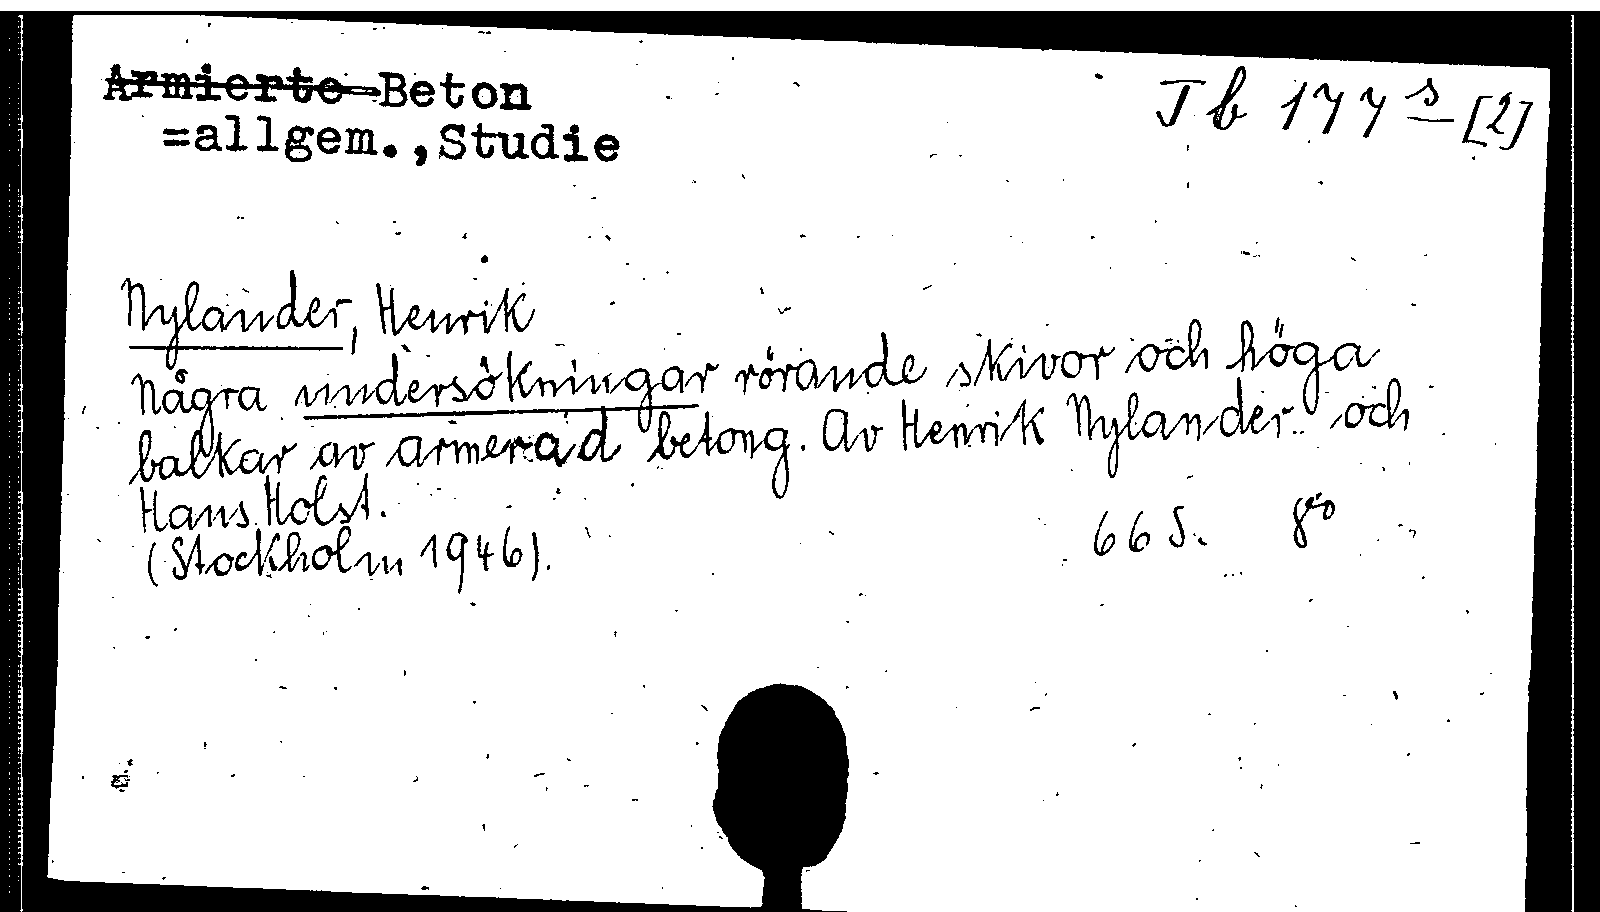 Armierte Beton
=allgem.,Studie
Tb 177 s [2]
Nylander, Henrik
Några undersökningar rörande skivor och höga
balkar av armerad betong. Av Henrik Nylander och
Hans Holst.
(Stockholm 1946).
66 S. 8°